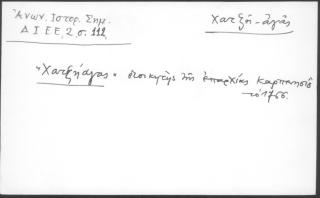 Ἀνων. Ἱστορ. Σημ.
Δ Ι Ε Ε, 2 σ. 112,
Χατζῆ-ἀγᾶς
"Χατζῆάγας" διοικητὴς τῆς ἐπαρχίας Καρπασίου
τὸ 1766.